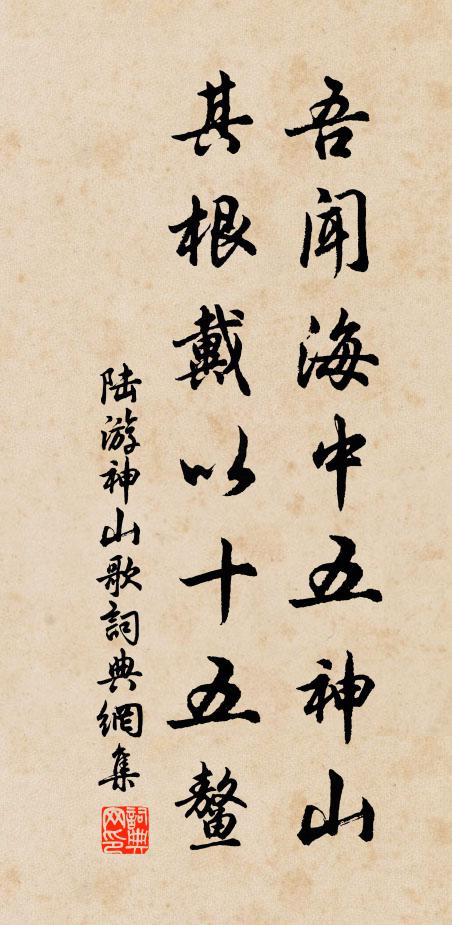 吾闻海中五神山
其根戴以十五鳌
陆游神山歌詞典網集
詞典网印